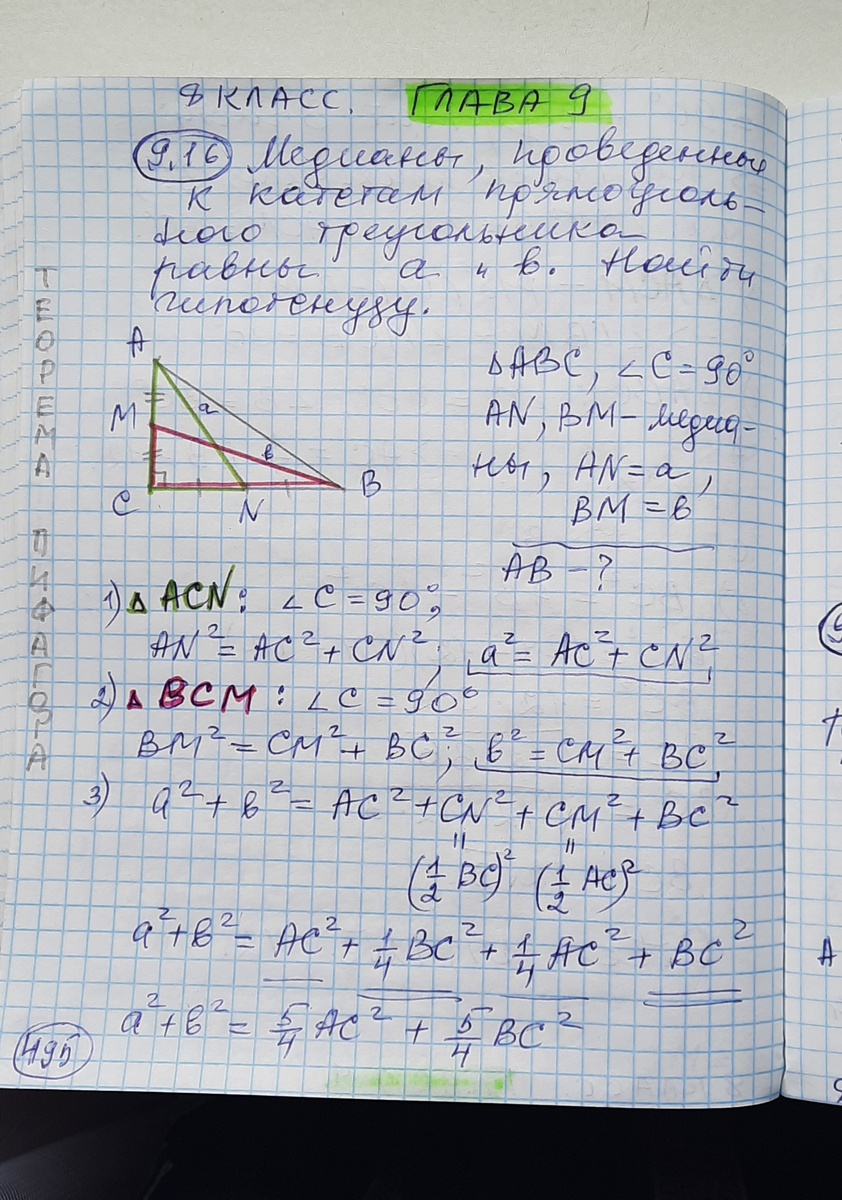 8 КЛАСС. ГЛАВА 9
9.16 Медианы, проведенные
к катетам прямоуголь-
ного треугольника
равны а и в. Найти
гипотенузу.
ТЕОРЕМА ПИФАГОРА
A
M
a
в
C
N
B
△ABC, ∠C = 90°
AN, BM - медиа-
ны, AN = a,
BM = в
AB - ?
1) △ ACN: ∠C = 90°,
AN² = AC² + CN²; a² = AC² + CN²,
2) △ BCM: ∠C = 90°
BM² = CM² + BC²; в² = CM² + BC²,
3) a² + в² = AC² + CN² + CM² + BC²
= =
(1/2 BC)² (1/2 AC)²
a² + в² = AC² + 1/4 BC² + 1/4 AC² + BC²
a² + в² = 5/4 AC² + 5/4 BC²
495